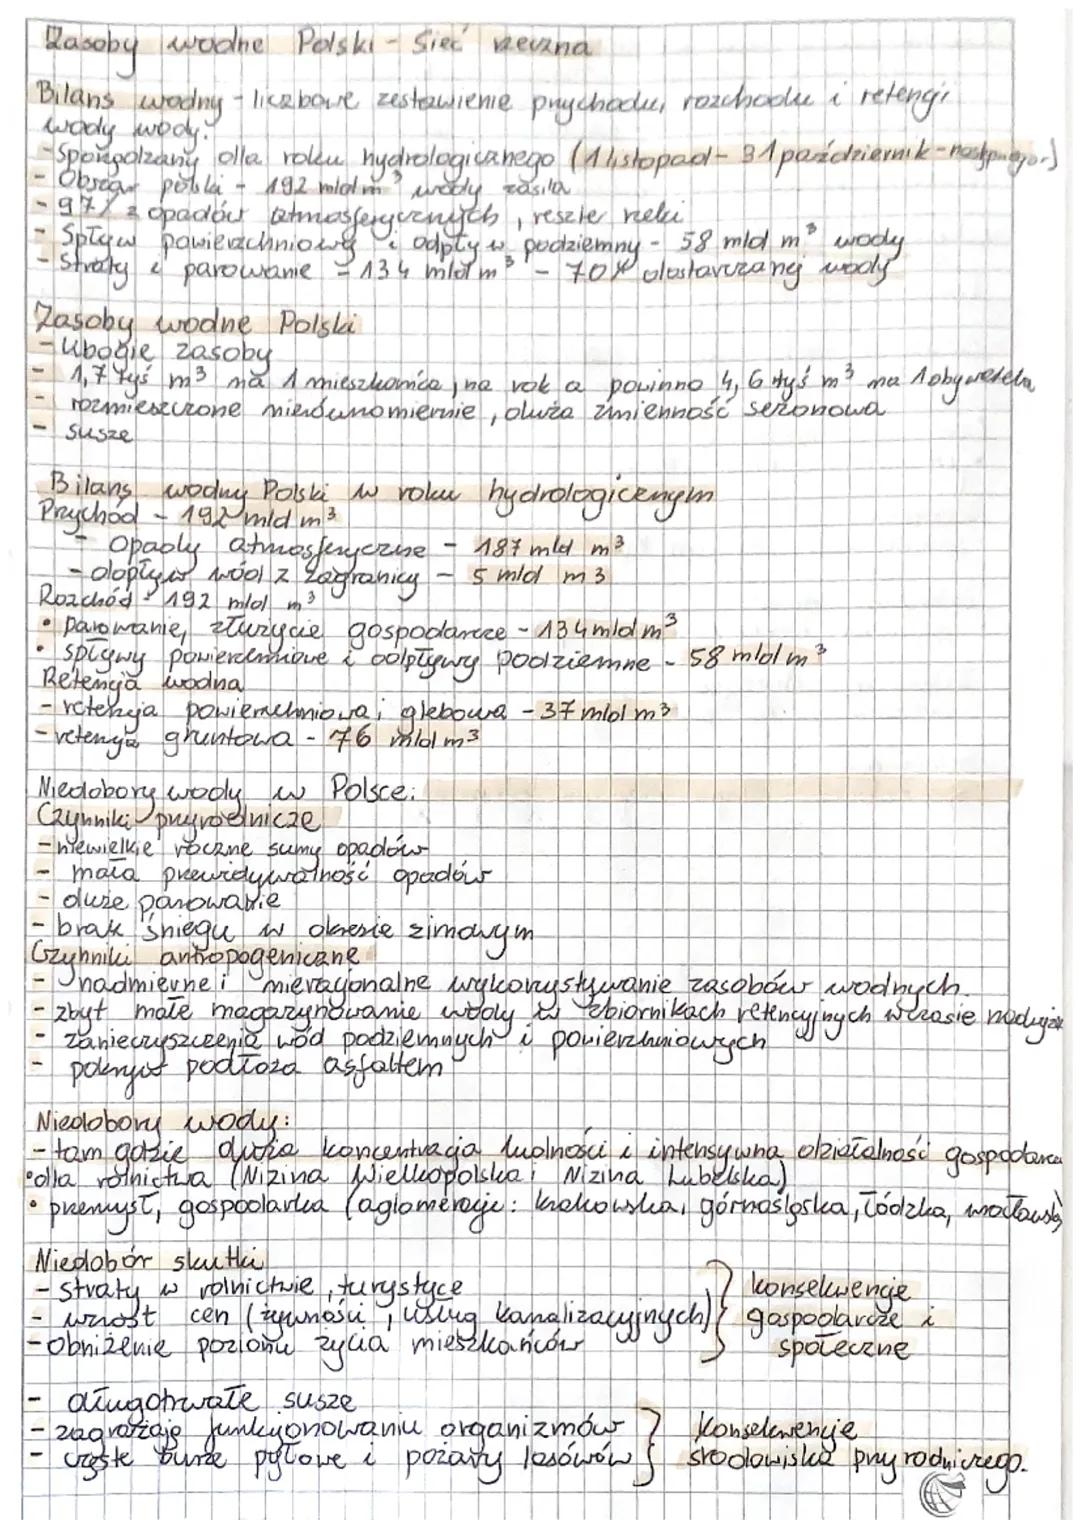 Zasoby wodne Polski - Sieć rzeczna
Bilans wodny - liczbowe zestawienie przychodu, rozchodu i retencji
wody wody.
- Sporządzany dla roku hydrologicznego (1 listopad - 31 październik - następnego r.)
- Obszar polski - 192 mld m³ wody zasila
- 97% z opadów atmosferycznych, reszte rzeki
- Spływ powierzchniowy i odpływ podziemny - 58 mld m³ wody
- Straty i parowanie - 134 mld m³ - 70% dostarczanej wody
Zasoby wodne Polski
- Ubogie zasoby
- 1,7 tyś m³ na 1 mieszkańca, na rok a powinno 4,6 tyś m³ na 1 obywatela
- rozmieszczone nierównomiernie, duża zmienność sezonowa
- susze
Bilans wodny Polski w roku hydrologicznym
Przychód - 192 mld m³
- Opady atmosferyczne - 187 mld m³
- dopływ wód z zagranicy - 5 mld m3
Rozchód - 192 mld m³
• parowanie, zturzycie gospodarcze - 134 mld m³
• spływy powierzchniowe i odpływy podziemne - 58 mld m³
Retencja wodna
- retencja powierzchniowa i glebowa - 37 mld m3
- retencja gruntowa - 76 mld m3
Niedobory wody w Polsce:
Czynniki przyrodnicze
- niewielkie roczne sumy opadów
- mała przewidywalność opadów
- duże parowanie
- brak śniegu w okresie zimowym
Czynniki antropogeniczne
- nadmierne i nieracjonalne wykorzystywanie zasobów wodnych.
- zbyt małe magazynowanie wody w zbiornikach retencyjnych w czasie nadwyżk
- zanieczyszczenia wód podziemnych i powierzchniowych
- pokrycie podłoża asfaltem
Niedobory wody:
- tam gdzie duża koncentracja ludności i intensywna działalność gospodarcza
• dla rolnictwa (Nizina Wielkopolska i Nizina Lubelska)
• przemysł, gospodarka (aglomeracje: krakowska, górnośląska, łódzka, wrocławska)
Niedobór skutki
- straty w rolnictwie, turystyce
- wzrost cen (żywności, usług kanalizacyjnych)
- Obniżenie poziomu życia mieszkańców
konsekwencje
gospodarcze i
społeczne
- długotrwałe susze
- zagrażają funkcjonowaniu organizmów
- częste burze pyłowe i pożary lasówów
Konsekwencje
środowiska przyrodniczego.